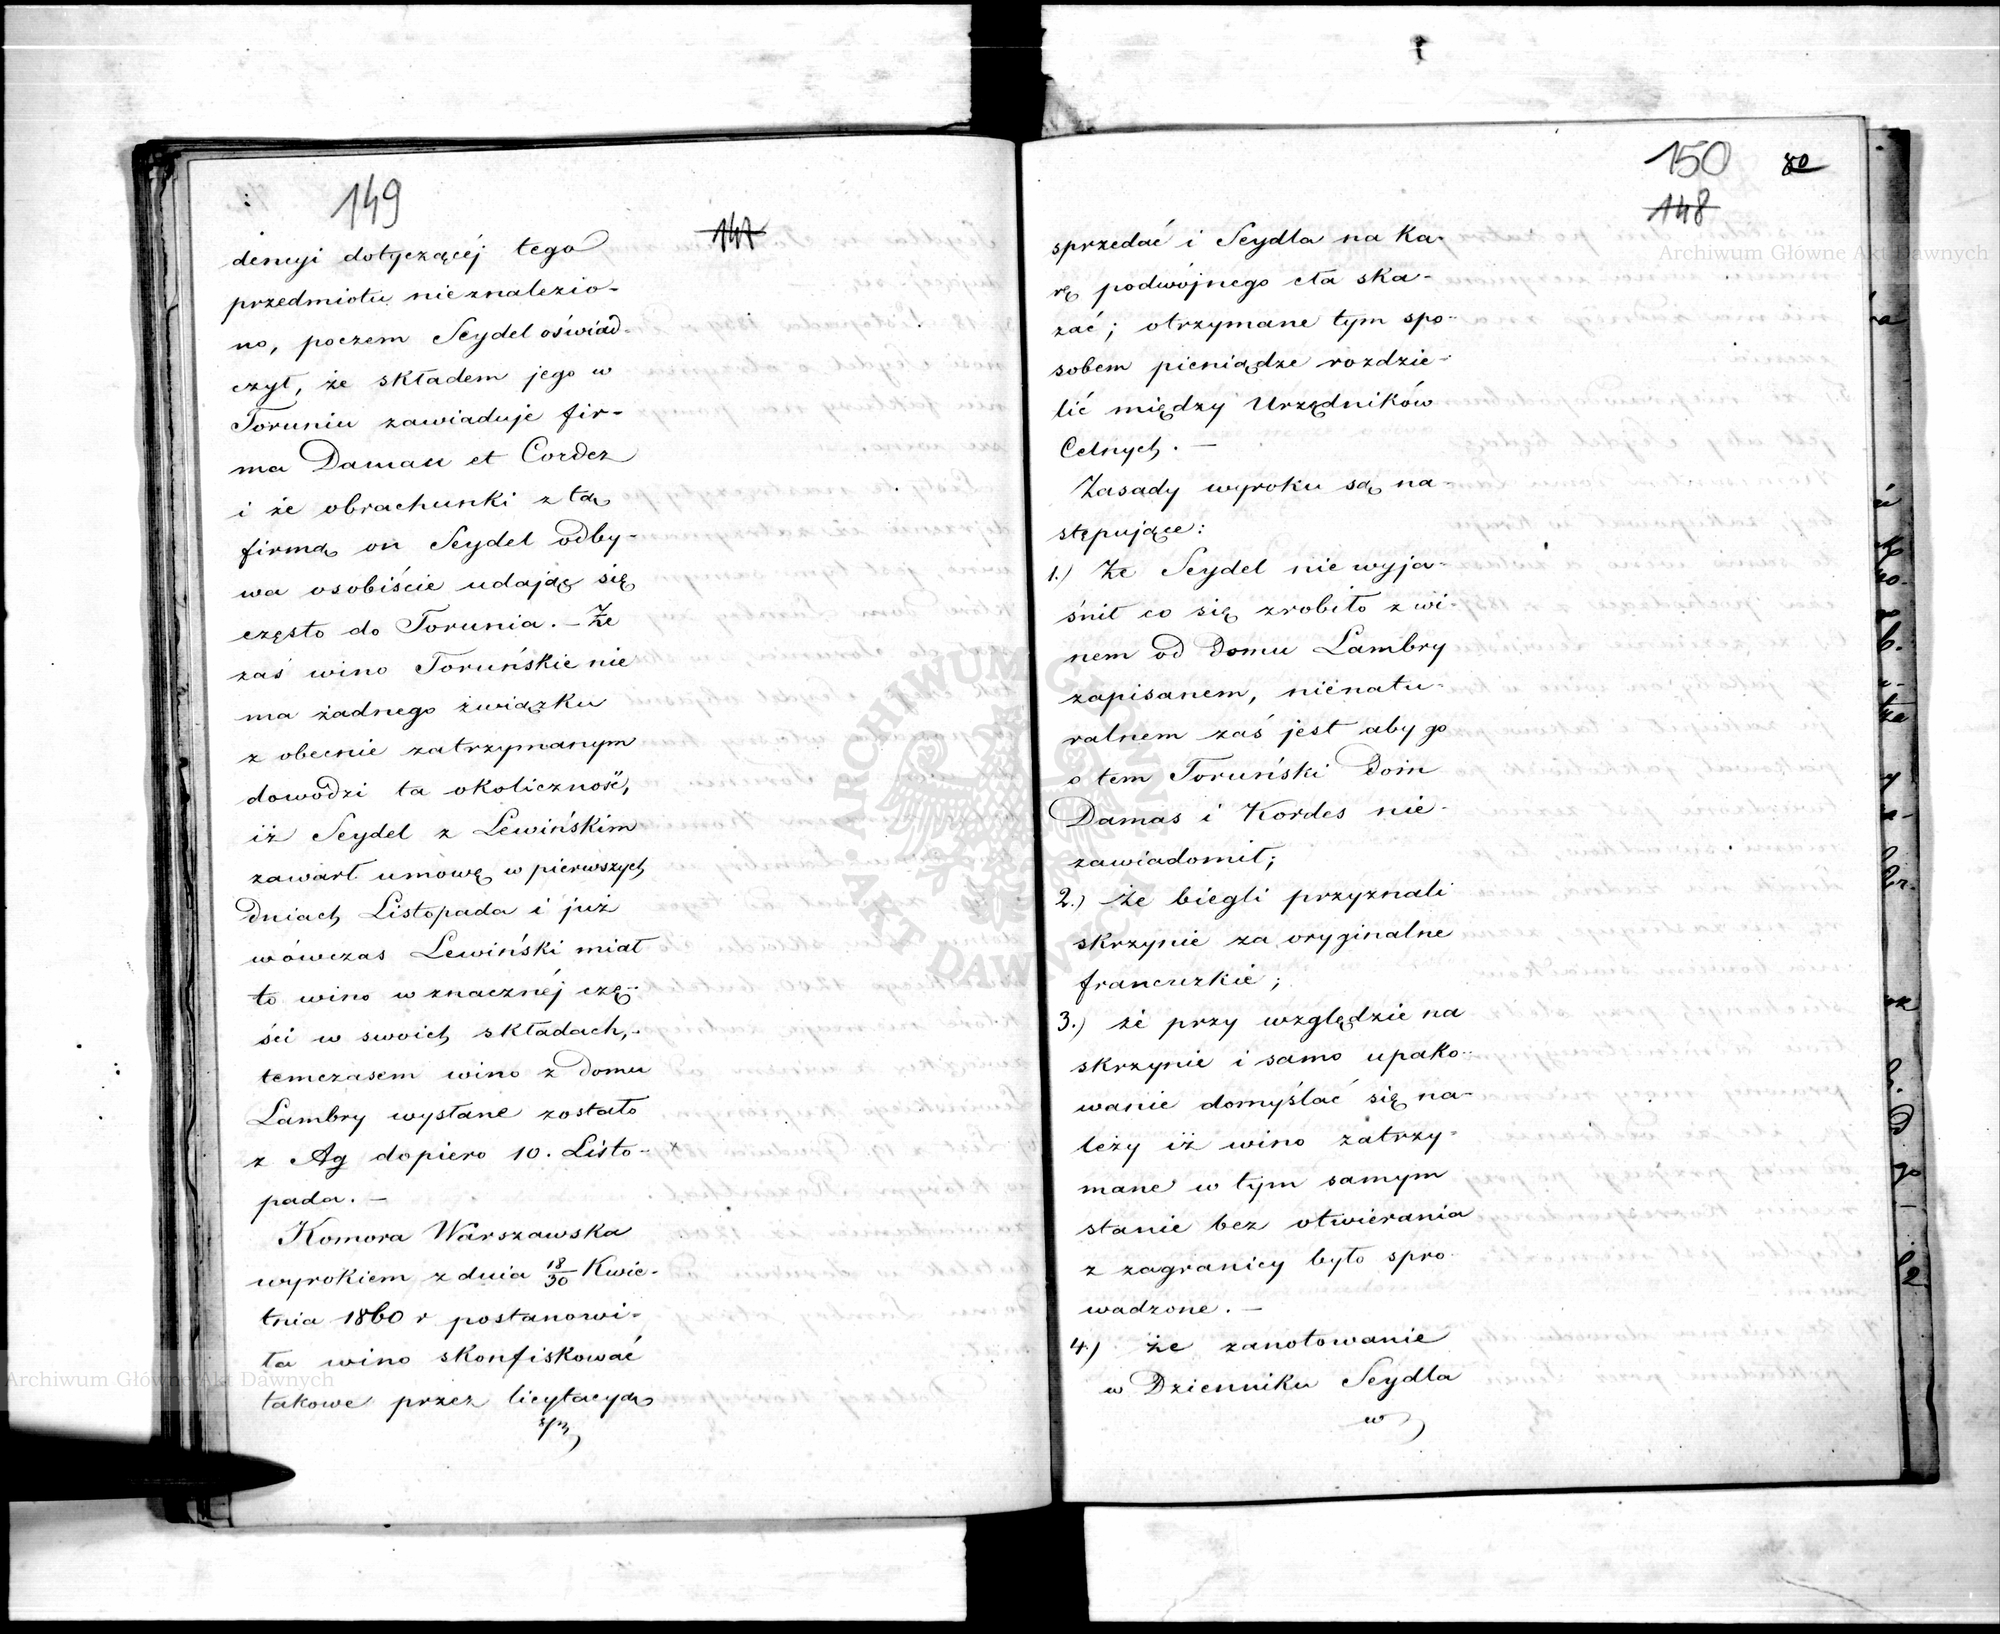 149
147
dencyi dotyczącéj tego
przedmiotu nieznalezio-
no, poczem Seydel oświad-
czył, że składem jego w
Toruniu zawiaduje fir-
ma Damau et Cordez
i że obrachunki z tą
firmą on Seydel odby-
wa osobiście udając się
często do Torunia. — Że
zaś wino Toruńskie nie
ma żadnego związku
z obecnie zatrzymanym
dowodzi ta okoliczność,
iż Seydel z Lewińskim
zawarł umowę w pierwszych
dniach Listopada i już
wówczas Lewiński miał
to wino w znacznéj czę-
ści w swoich składach,
temczasem wino z domu
Lambry wysłane zostało
z Ag dopiero 10. Listo-
pada. —
Komora Warszawska
wyrokiem z dnia 18/30 Kwie-
tnia 1860 r postanowi-
ła wino skonfiskować
takowe przez licytacyą
150 80
148
sprzedać i Seydla na ka-
rę podwójnego cła ska-
zać; otrzymane tym spo-
sobem pieniądze rozdzie-
lić między Urzędników
Celnych. —
Zasady wyroku są na-
stępujące:
1.) Że Seydel nie wyja-
śnił co się zrobiło z wi-
nem od domu Lambry
zapisanem, nienatu-
ralnem zaś jest aby go
o tem Toruński Dom
Damas i Kordes nie-
zawiadomił;
2.) że biegli przyznali
skrzynie za oryginalne
francuzkie;
3.) że przy względzie na
skrzynie i samo upako-
wanie domyślać się na-
leży iż wino zatrzy-
mane w tym samym
stanie bez otwierania
z zagranicy było spro-
wadzone. —
4.) że zanotowanie
w Dzienniku Seydla
w
Archiwum Główne Akt Dawnych
Archiwum Główne Akt Dawnych
ARCHIWUM GŁÓWNE AKT DAWNYCH